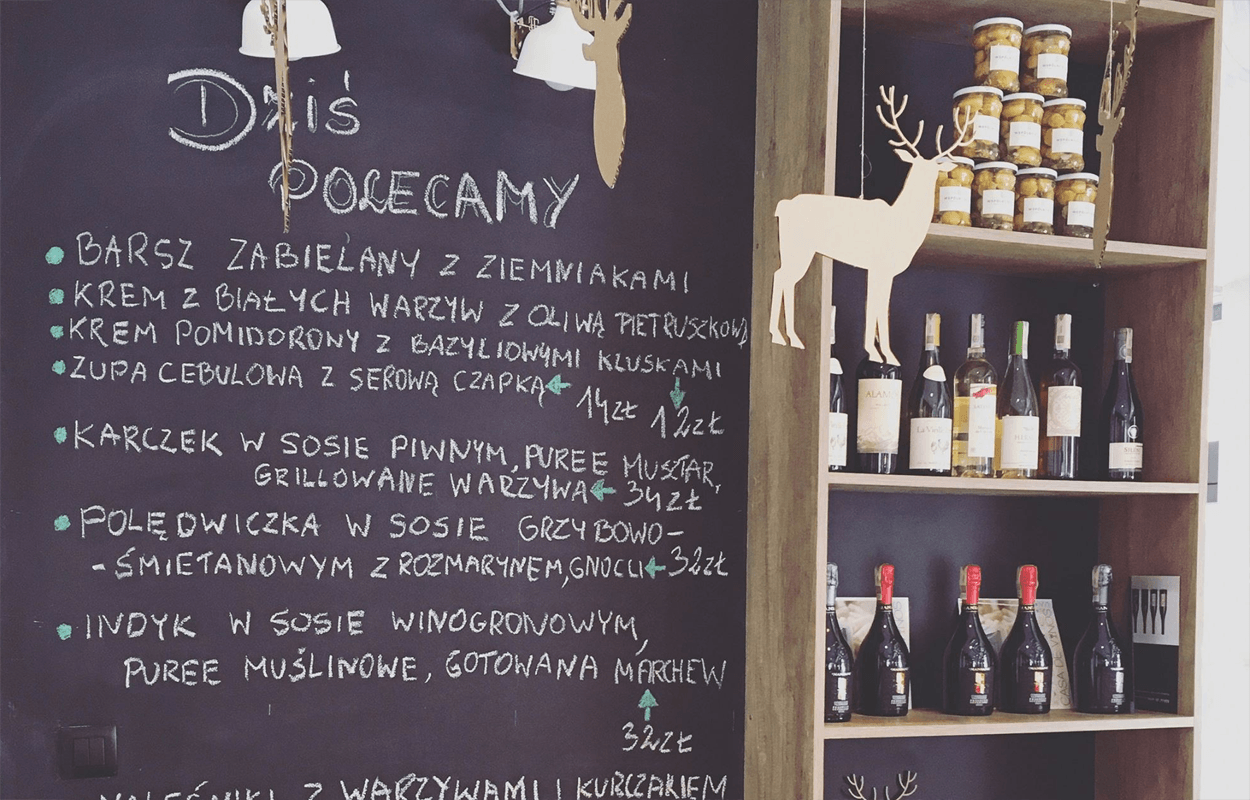 Dziś
POLECAMY
BARSZ ZABIELANY Z ZIEMNIAKAMI
KREM Z BIAŁYCH WARZYW Z OLIWĄ PIETRUSZKOWĄ
KREM POMIDORONY Z BAZYLIOWYMI KLUSKAMI
ZUPA CEBULOWA Z SEROWĄ CZAPKĄ
14zł 12zł
KARCZEK W SOSIE PIWNYM, PUREE MUSZTAR,
GRILLOWANE WARZYWA 34ZŁ
POLĘDWICZKA W SOSIE GRZYBOWO-
-ŚMIETANOWYM Z ROZMARYNEM, GNOCCI 32zł
INDYK W SOSIE WINOGRONOWYM,
PUREE MUŚLINOWE, GOTOWANA MARCHEW
32zł
NALEŚNIKI Z WARZYWAMI I KURCZAKIEM